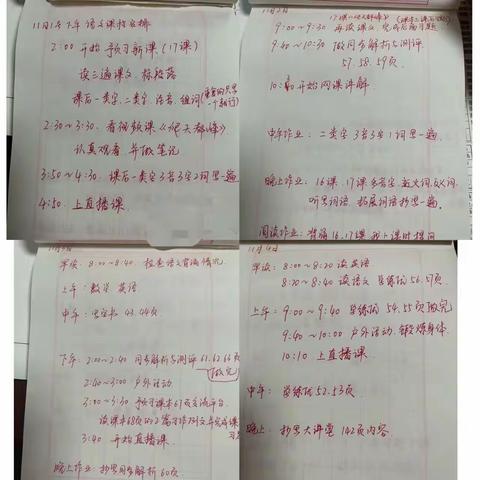 11月1日下午 语文课程安排
2:00 开始 预习新课(17课)
读三遍课文 标段落
课后一类字、二类字 注音、组词
2:30~3:30. 看视频课《爬天都峰》
认真观看 并做笔记
3:50~4:30. 课后一类字3音3字2词写一遍
4:50. 上直播课
11月2日
17课《爬天都峰》
9:00~9:30 再读课文,完成后面习题
9:40~10:30 做同步解析与测评
57.58.59页
10:50开始网课讲解
中午作业: 二类字 3音3字1词写一遍
晚上作业: 16课.17课多音字 近义词.反义词.
听写词语. 拓展词语抄写一遍.
阅读作业: 背诵16.17课
11月3日
早读: 8:00~8:40. 检查语文背诵情况.
上午: 数学 英语
中午: 43.44页
下午: 2:00~2:40 同步解析与测评 61.62.63页
(做完)
2:40~3:00 户外活动
3:00~3:30 预习课本67页交流平台.
读课本68页的2篇习作例文
3:40 开始直播课.
晚上作业: 抄写同步解析60页.
11月4日
早读: 8:00~8:20 读英语
8:20~8:40 读语文 56.57页
上午: 9:00~9:40 54.55页做完
9:40~10:00 户外活动. 锻炼身体.
10:10 上直播课
中午: 52.53页.
晚上: 抄写大讲堂 142页内容